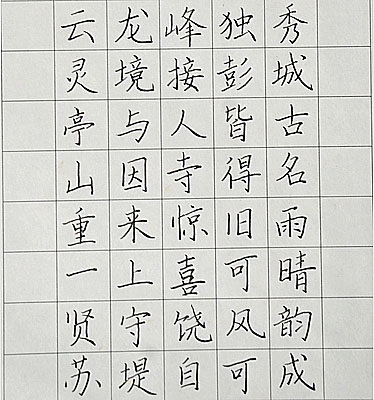 云龙峰独秀
灵境接彭城
亭与人皆古
山因寺得名
重来惊旧雨
一上喜可晴
贤守饶风韵
苏堤自可成